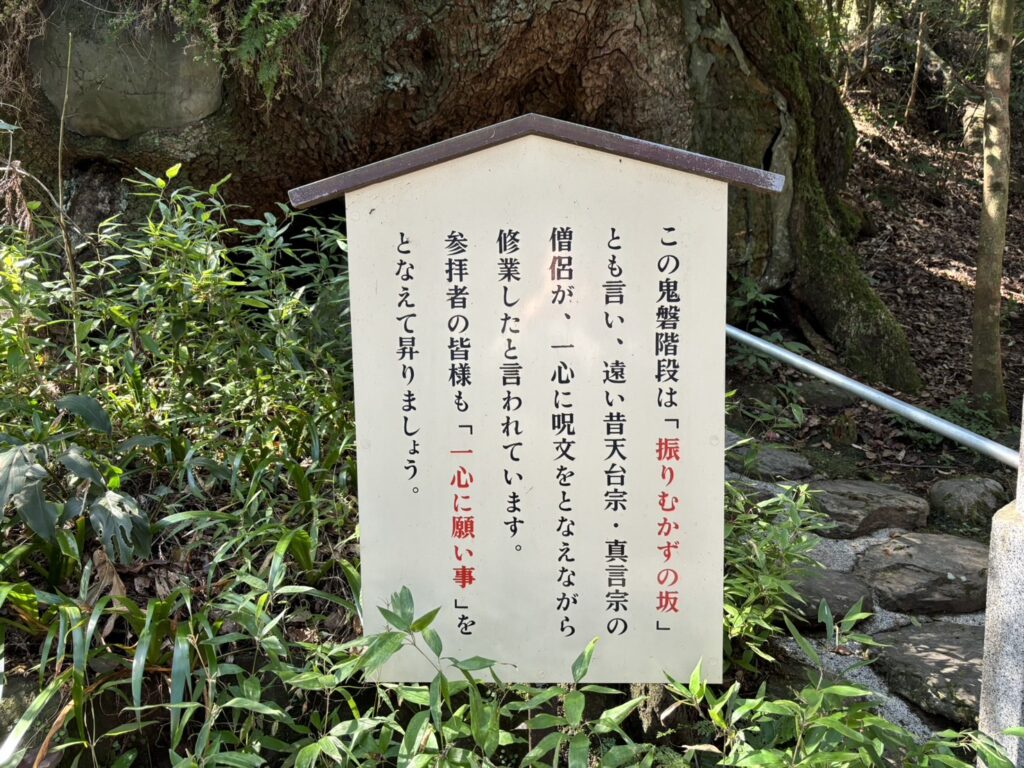 この鬼磐階段は「振りむかずの坂」
とも言い、遠い昔天台宗・真言宗の
僧侶が、一心に呪文をとなえながら
修業したと言われています。
参拝者の皆様も「一心に願い事」を
となえて昇りましょう。